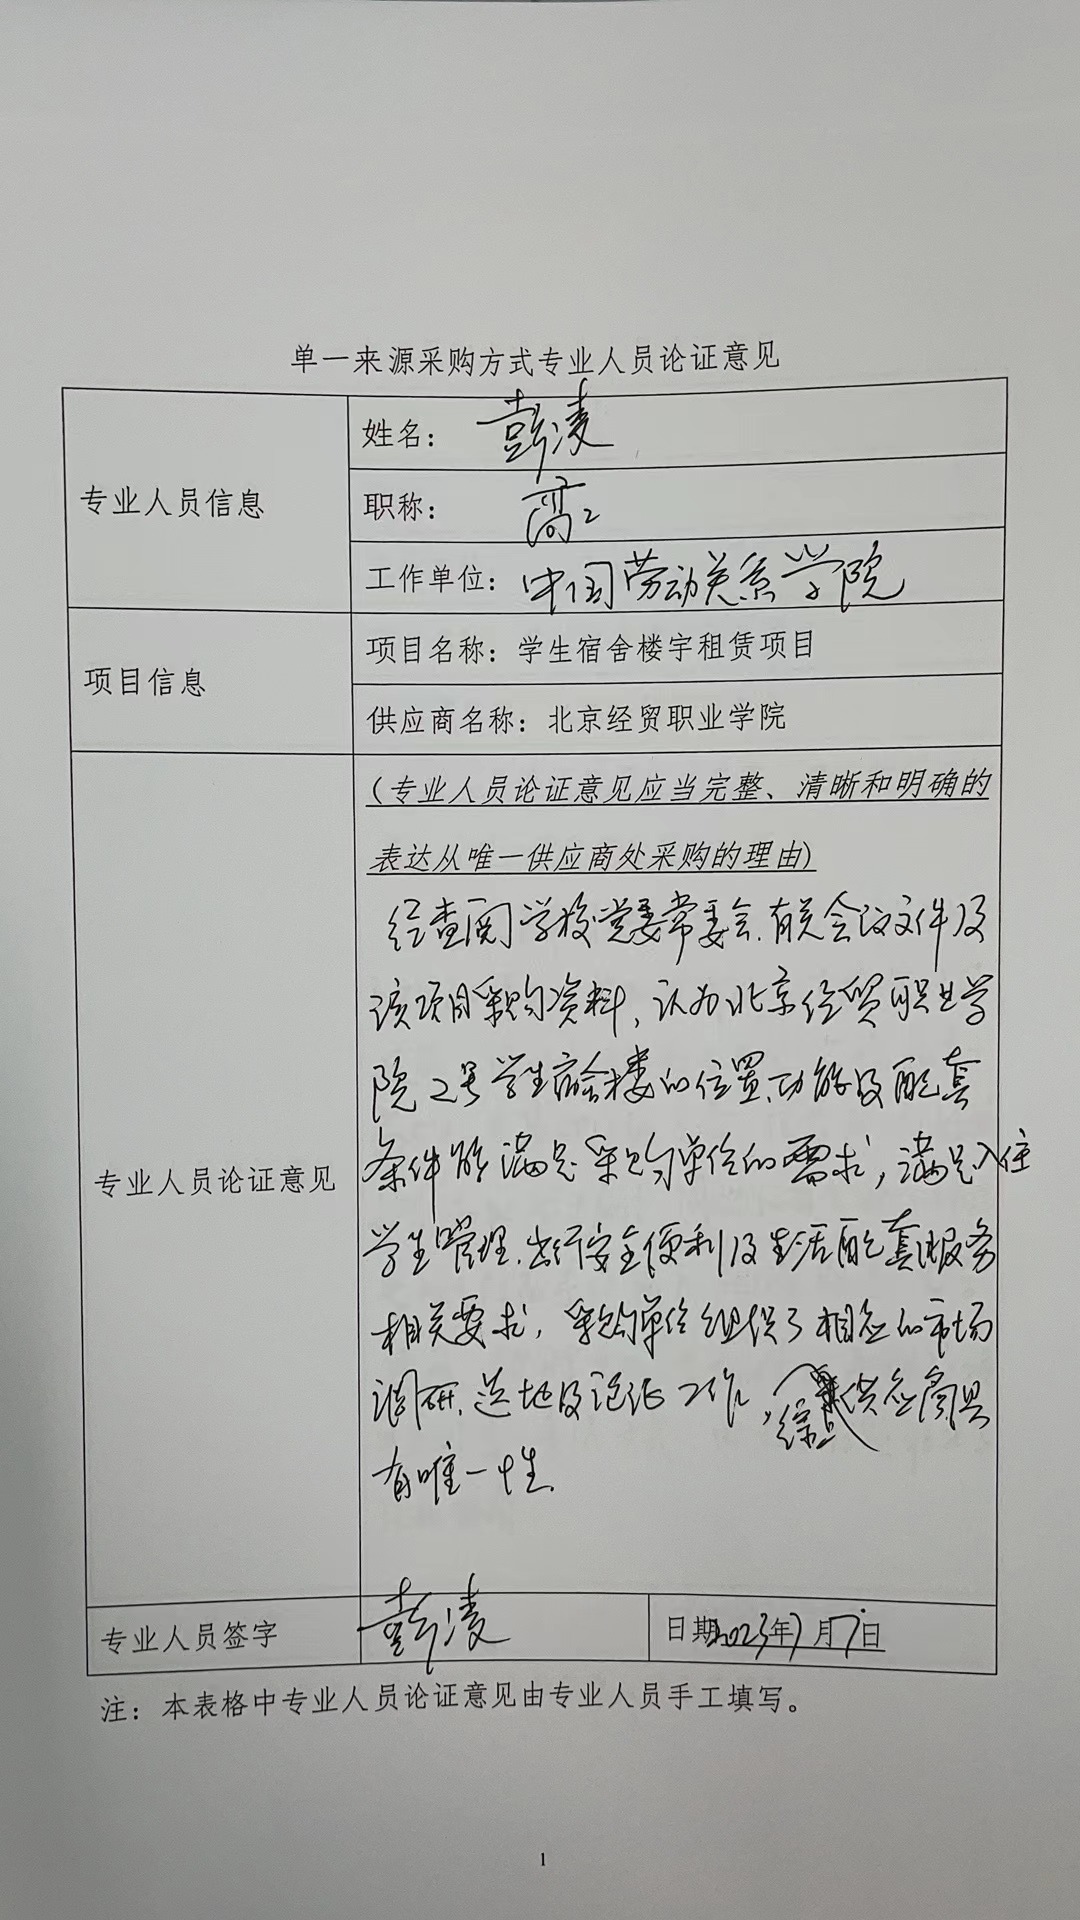 单一来源采购方式专业人员论证意见
专业人员信息
姓名：彭凌
职称：高工
工作单位：中国劳动关系学院
项目信息
项目名称：学生宿舍楼宇租赁项目
供应商名称：北京经贸职业学院
专业人员论证意见
（专业人员论证意见应当完整、清晰和明确的
表达从唯一供应商处采购的理由)
经查阅学校党委常委会、有关会议文件及
该项目采购资料，认为北京经贸职业学
院2号学生宿舍楼的位置、功能及配套
条件能满足采购单位的需求，满足入住
学生管理、出行安全便利及生活配套服务
相关要求，采购单位组织了相应的市场
调研、选地及论证工作，综上供应商具
有唯一性.
专业人员签字
彭凌
日期2023年7月7日
注：本表格中专业人员论证意见由专业人员手工填写。
1